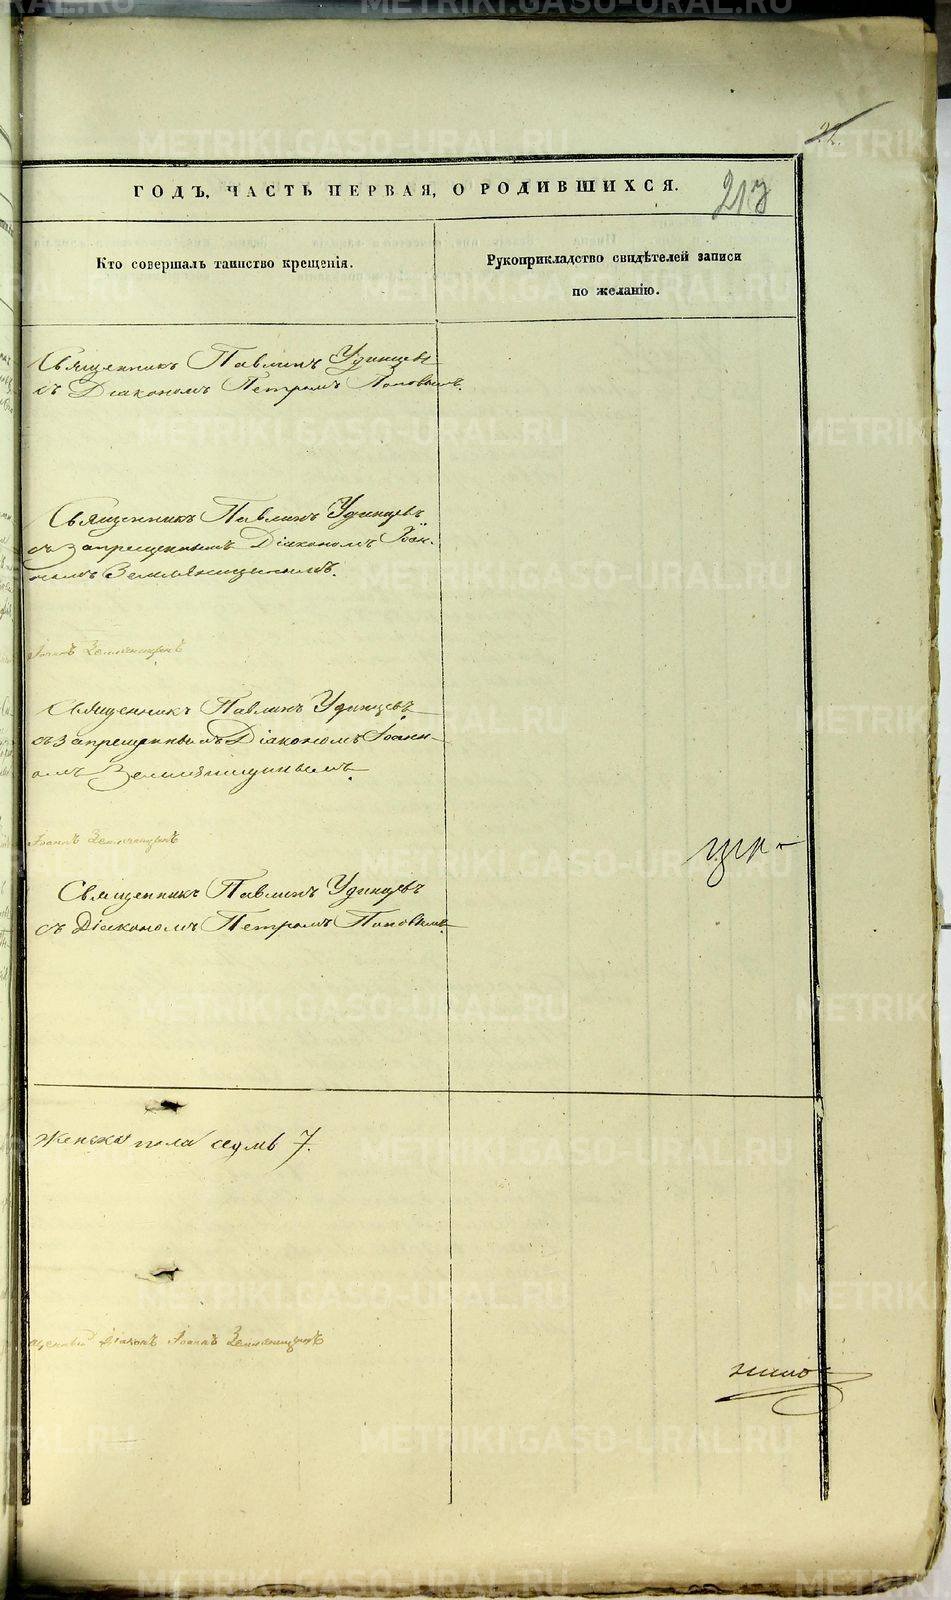 22.
ГОДЪ, ЧАСТЬ ПЕРВАЯ, О РОДИВШИХСЯ.
213
Кто совершалъ таинство крещенія.
Рукоприкладство свидѣтелей записи
по желанію.
Священникъ Павлинъ Удинцевъ
съ Діакономъ Петромъ Поповымъ.
Священникъ Павлинъ Удинцевъ
съ запрещеннымъ Діакономъ Іоан-
номъ Земляницынымъ.
Іоаннъ Земляницынъ
Священникъ Павлинъ Удинцевъ
съ запрещеннымъ Діакономъ Іоанн-
омъ Земляницынымъ.
Іоаннъ Земляницынъ
Священникъ Павлинъ Удинцевъ
съ Діакономъ Петромъ Поповымъ.
Женска пола седмь 7.
Діаконъ Іоаннъ Земляницынъ
METRIKI.GASO-URAL.RU